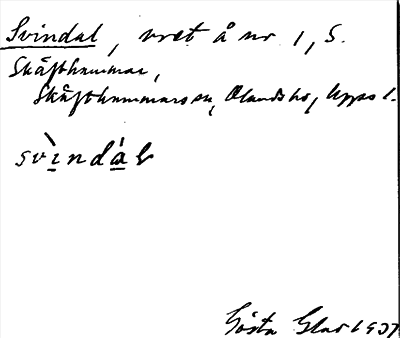 Svindal, vret å nr 1, S.
Skäfthammar,
Skäfthammars sn, Olands hd, Upps l.
svìndál
Gösta Glas 1937